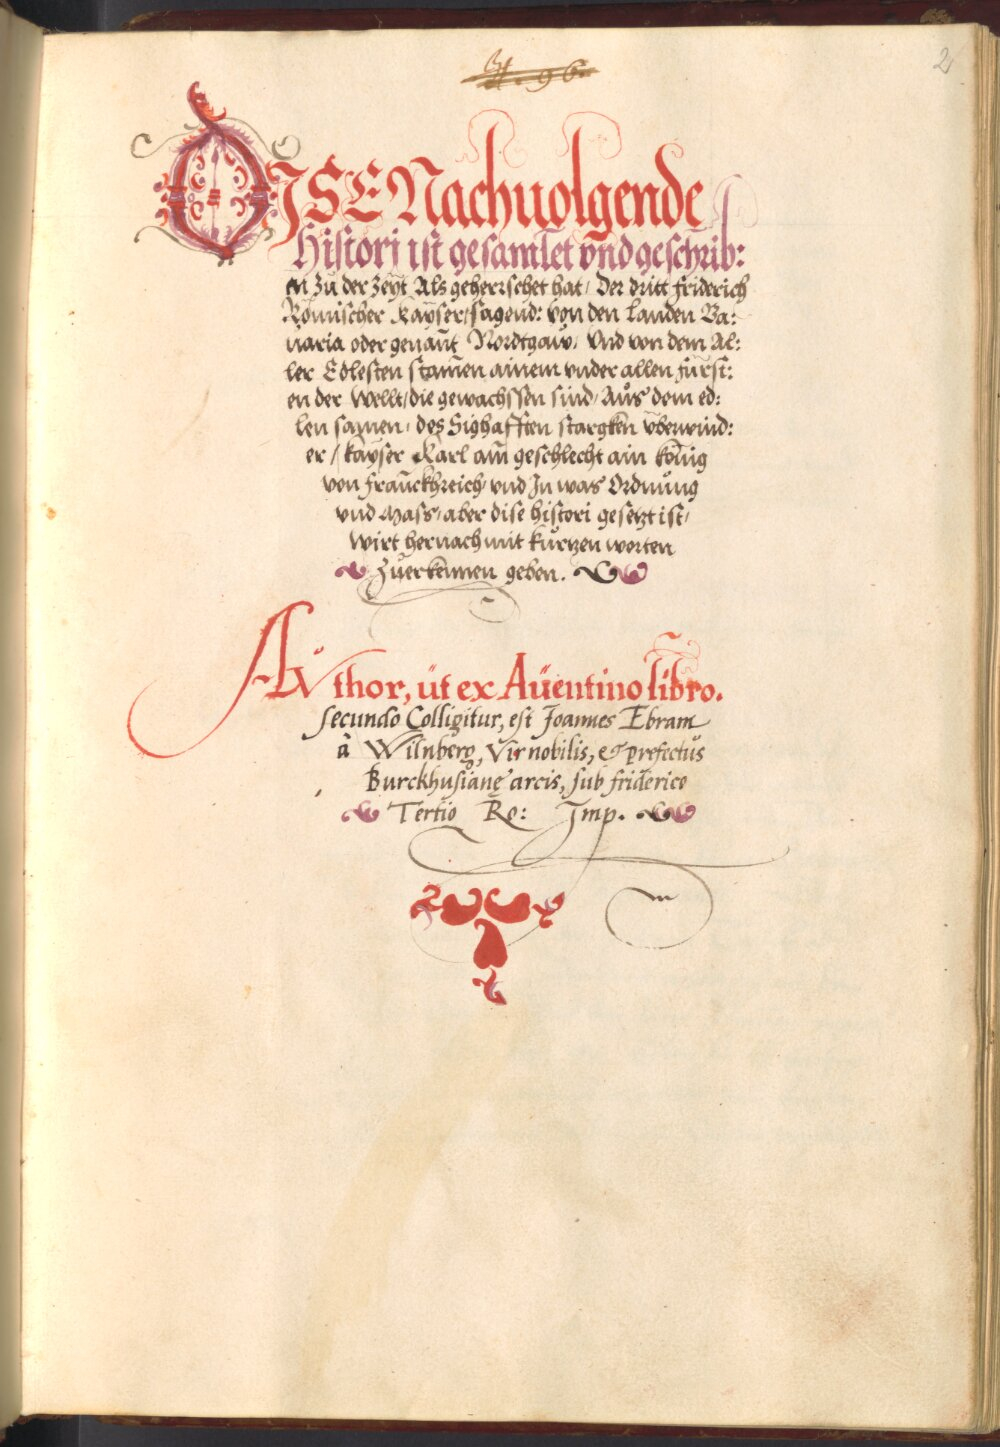 2
96.
DISE Nachuolgende
Histori ist gesamlet vnd geschrib:
en zů der zeyt Als geherrschet hat / Der dritt friderich
Römischer Kayser / sagend: von den landen Ba:
uaria oder genañt Nordtgaw / Vnd von dem Al:
ler Edlesten stam̃en ainem vnder allen fürst:
en der Wellt / die gewachssen sind / Aůs dem ed:
len samen / des Sighafften starcken vberwind:
er / kayser Karl am̃ geschlecht ain könig
von franckhreich / vnd Jn was Ordnůng
vnd Mass / aber dise histori gesetzt ist /
Wirt hernach mit kůrtzen worten
Zůerkennen geben.
Aůthor, üt ex Aüentino libro.
secundo Colligitur, est Joannes Ebram
à Wilnberg, Vir nobilis, & prefectůs
Burckhusianę arcis, sub friderico
Tertio Ro: Jmp.